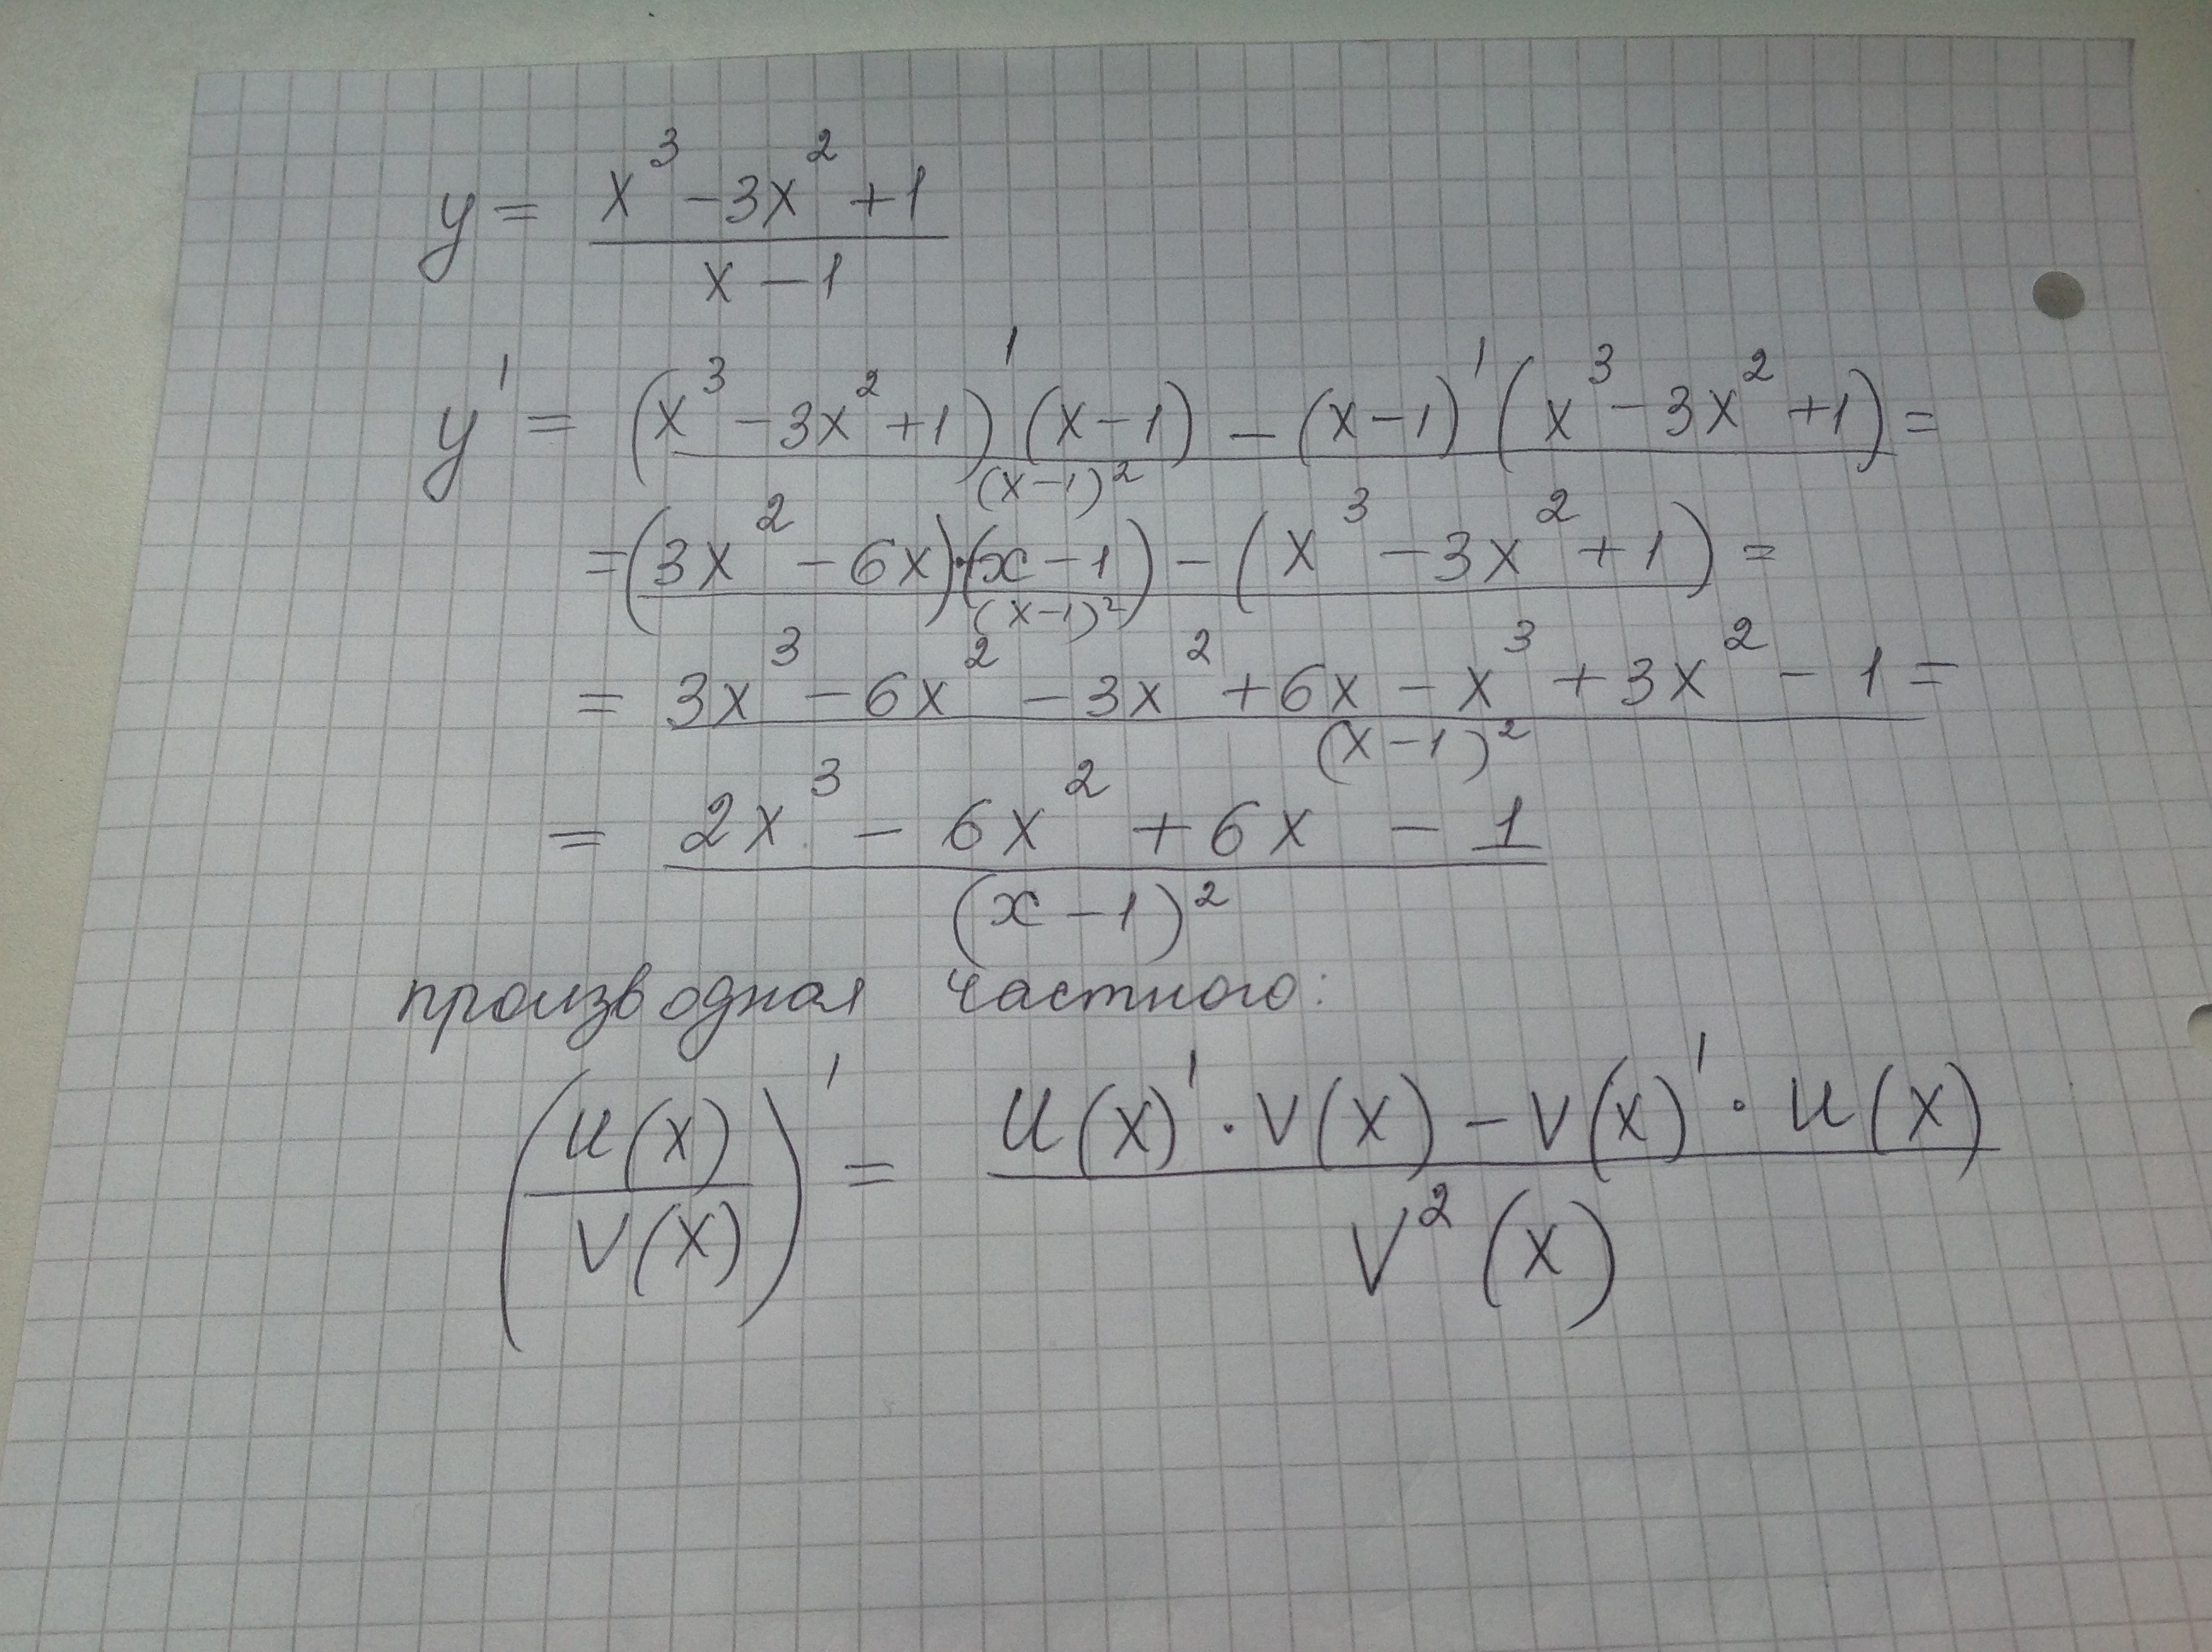 y = (x³ - 3x² + 1) / (x - 1)
y' = ((x³ - 3x² + 1)' (x - 1) - (x - 1)' (x³ - 3x² + 1)) / (x - 1)² =
= ((3x² - 6x) · (x - 1) - (x³ - 3x² + 1)) / (x - 1)² =
= (3x³ - 6x² - 3x² + 6x - x³ + 3x² - 1) / (x - 1)² =
= (2x³ - 6x² + 6x - 1) / (x - 1)²
производная частного:
(u(x) / v(x))' = (u(x)' · v(x) - v(x)' · u(x)) / v²(x)